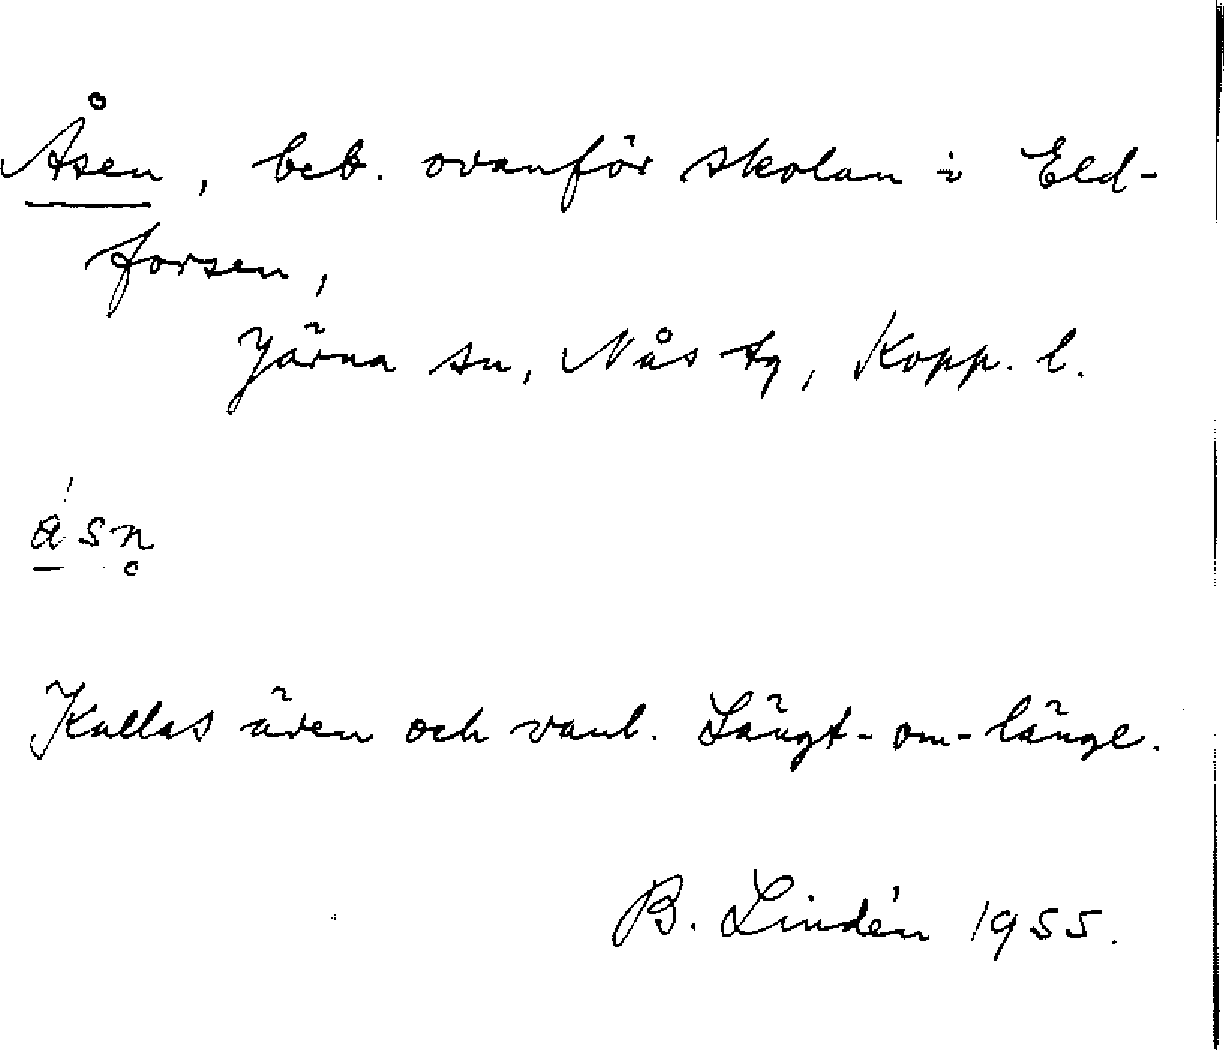 Åsen, beb. ovanför skolan i Eld-
forsen,
Järna sn, Nås tg, Kopp. l.
Kallas även och vanl. Längt-om-länge.
B. Lindén 1955.